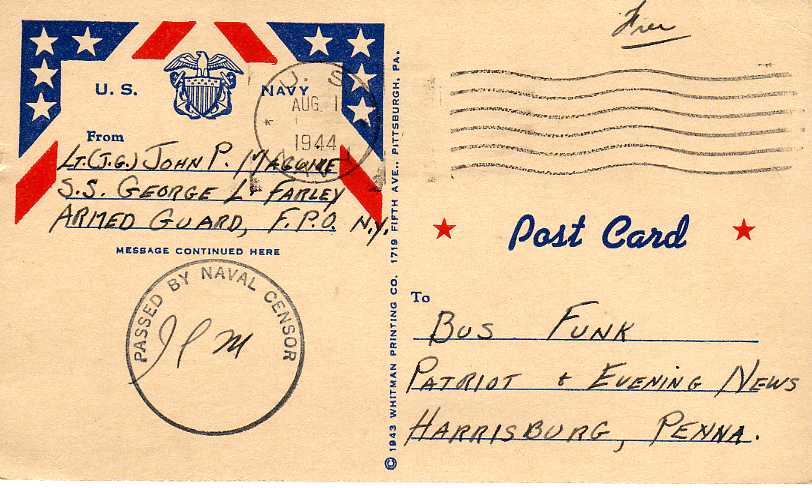 Free
U. S. NAVY
U. S.
AUG 1
1944
From
LT.(J.G.) JOHN P. MAGUIRE
S.S. GEORGE L. FARLEY
ARMED GUARD, F.P.O. N.Y.
MESSAGE CONTINUED HERE
PASSED BY NAVAL CENSOR
JPM
© 1943 WHITMAN PRINTING CO. 1719 FIFTH AVE., PITTSBURGH, PA.
Post Card
To
BUS FUNK
PATRIOT & EVENING NEWS
HARRISBURG, PENNA.